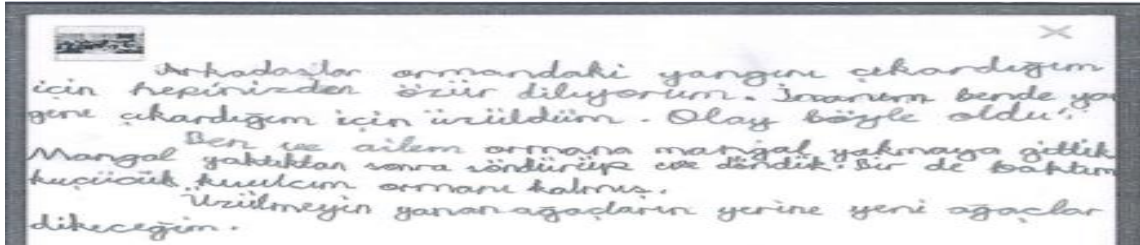 Arkadaşlar ormandaki yangını çıkardığım
için hepinizden özür diliyorum. İnanın bende yan
gını çıkardığım için üzüldüm. Olay böyle oldu;
Ben ve ailem ormana mangal yakmaya gittik
Mangal yaktıktan sonra söndürüp eve döndük. Bir de baktım
küçücük kıvılcım ormanı kalmış.
Üzülmeyin yanan ağaçların yerine yeni ağaçlar
dikeceğim.